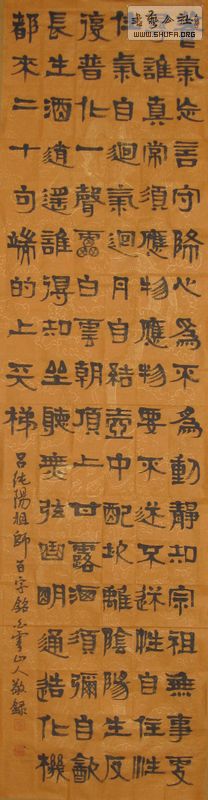 書藝公社
WWW.SHUFA.ORG
氣忘言守降心為不為動靜知宗祖無事更
誰真常須應物應物要不迷不迷性自住性
住氣自迴氣迴丹自結壺中配坎離陰陽生反
復普化一聲雷白雲朝頂上甘露洒須彌自飲
長生酒逍遙誰得知坐聽無弦曲明通造化機
都來二十句端的上天梯
呂純陽祖師百字銘 雲山人敬錄